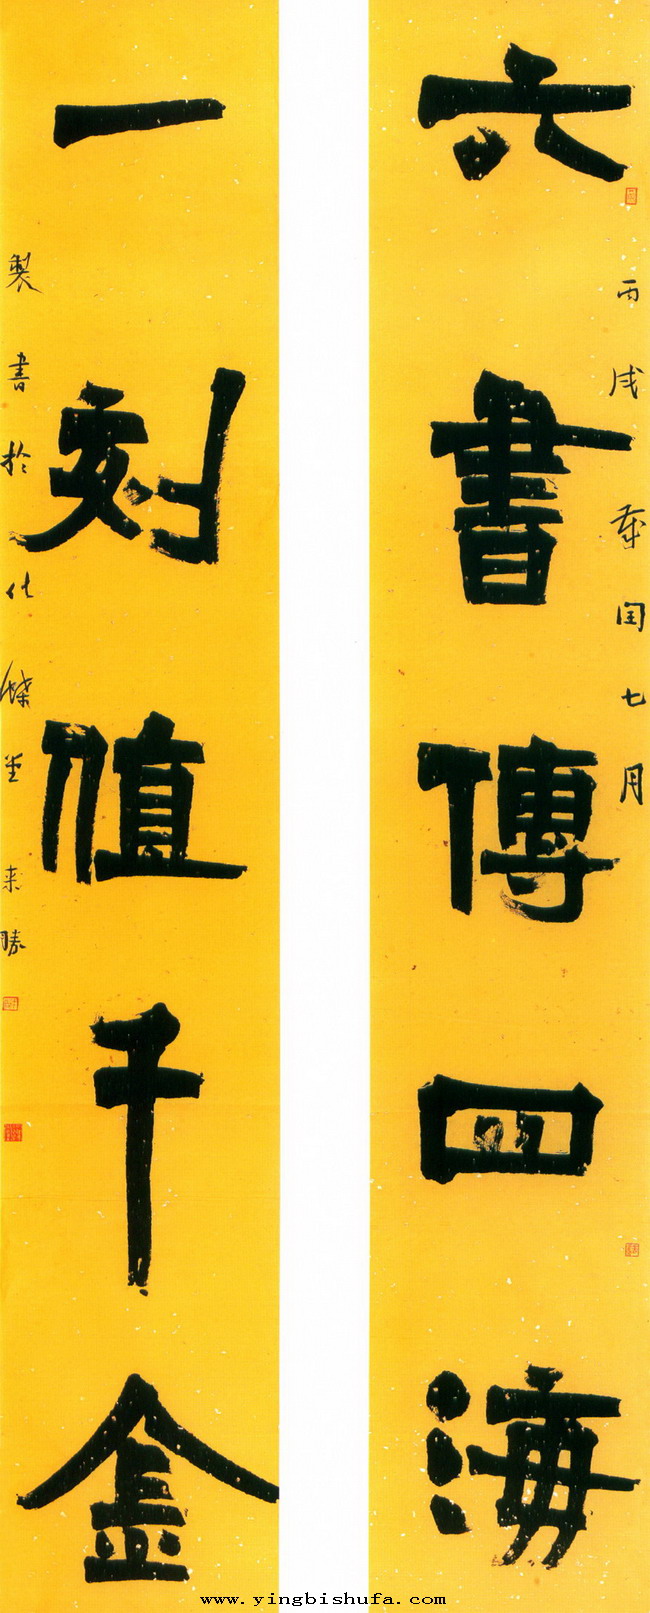 六書傳四海
丙戌歲閏七月
一刻值千金
製書於化蝶堂來勝
www.yingbishufa.com